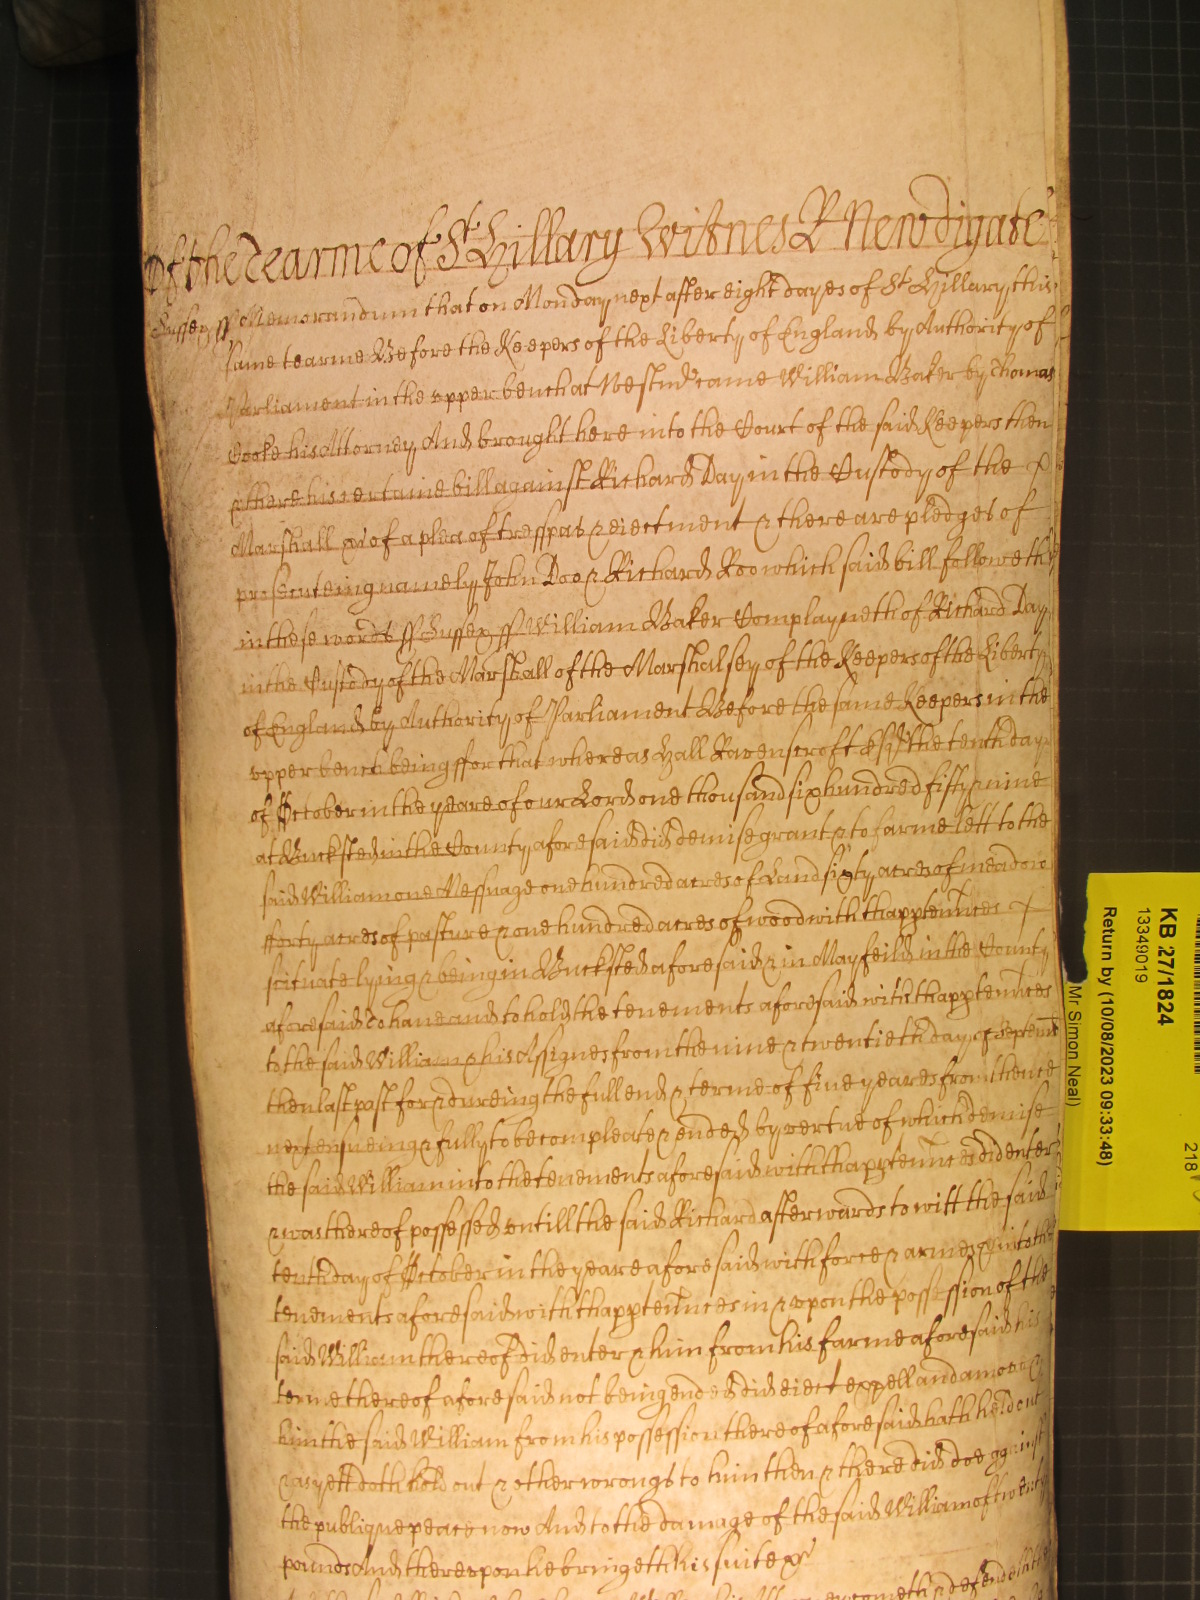 Of the tearme of St. Hillary Witnes R Newdigate
Sussex ss Memorandum that on Monday next after eight dayes of St Hillary this
same tearme Before the Keepers of the Liberty of England by Authority of
Parliament in the upper bench at Westmr came William Baker by Thomas
Cooke his Attorney And brought here into the Court of the said Keepers then
& there his certaine bill against Richard Day in the Custody of the
Marshall &c of a plea of tresspas & eiectment & there are pledges of
prosecuteing namely John Doo & Richard Roo which said bill followeth
in these words ss Sussex ss William Baker Complayneth of Richard Day
in the Custody of the Marshall of the Marshalsey of the Keepers of the Liberty
of England by Authority of Parliament Before the same Keepers in the
upper bench being ffor that whereas Hall Ravenscroft Esqr the tenth day
of October in the yeare of our Lord one thousand six hundred fifty & nine
at Bucksted in the County aforesaid did demise grant & to farme lett to the
said William one Messuage one hundred acres of Land sixty acres of meadow
fforty acres of pasture & one hundred acres of wood with thapptennces
scituate lying & being in Bucksted aforesaid & in Mayfeild in the County
aforesaid To have and to hold the tenements aforesaid with thapptennces
to the said William & his Assignes from the nine & twentieth day of Septemr
then last past for & dureing the full end & terme of five yeares from thence
next ensueing & fully to be compleate & ended by vertue of which demise
the said William into the tenements aforesaid with thapptennces did enter
& was thereof possessed untill the said Richard afterwards to witt the said
tenth day of October in the yeare aforesaid with force & armes &c into the
tenements aforesaid with thapptennces in & upon the possession of the
said William thereof did enter & him from his farme aforesaid his
terme thereof aforesaid not being ended did eiect expell and amove &
him the said William from his possession thereof aforesaid hath held out
& as yett doth hold out & other wrongs to him then & there did doe against
the publique peace now And to the damage of the said William of twenty
pounds And thereupon he bringeth his suite &c
KB 27/1824
13349019
Return by (10/08/2023 09:33:48)
Mr Simon Neal)
218